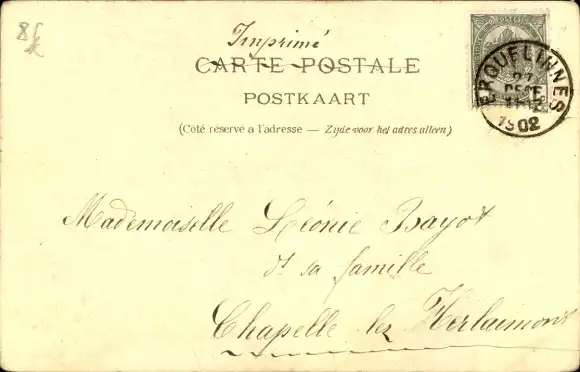 Imprimé
CARTE POSTALE
POSTKAART
(Côté réservé a l'adresse — Zijde voor het adres alleen)
ERQUELINNES
27
DECE
1902
Mademoiselle Léonie Bayot
et sa famille
Chapelle lez Herlaimont